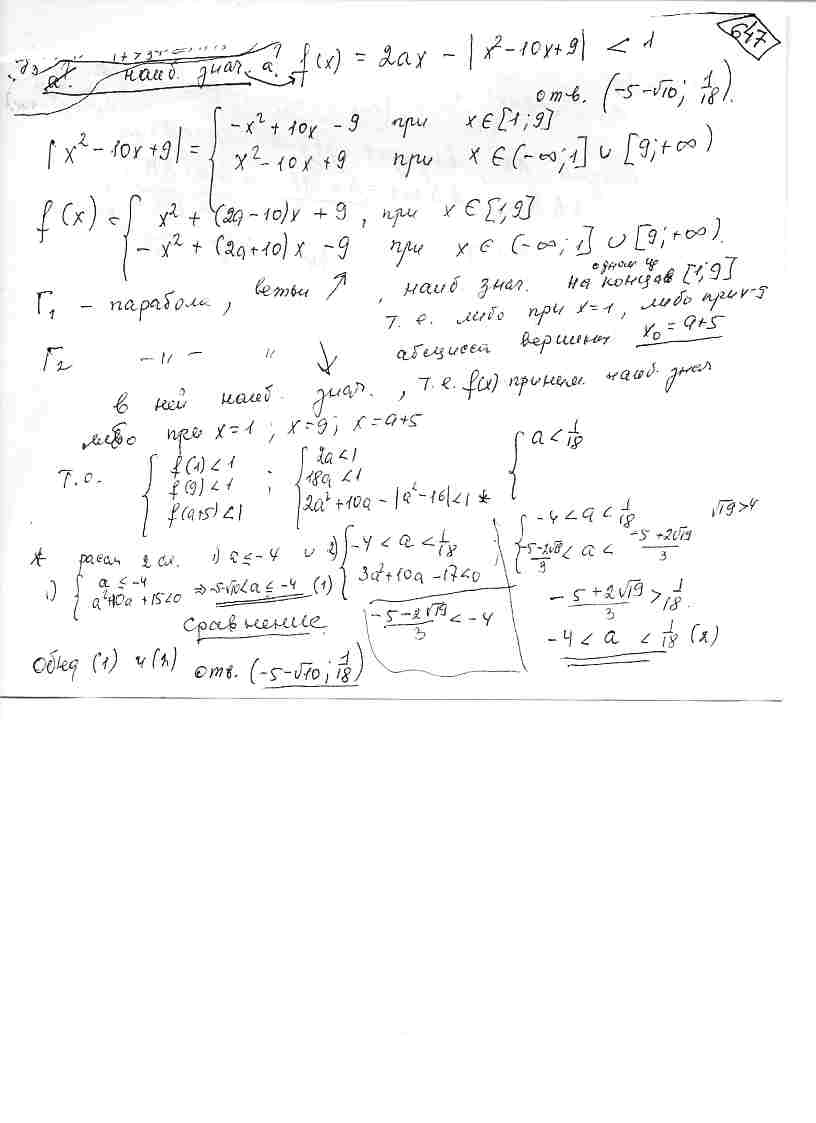 647
наиб. знач. a. f(x) = 2ax − |x²−10x+9| < 1
отв. (−5−√10; 1/18).
|x²−10x+9| = { −x²+10x−9 при x∈[1;9]
x²−10x+9 при x∈(−∞;1]∪[9;+∞)
f(x) = { x²+(2a−10)x+9, при x∈[1,9]
−x²+(2a+10)x−9 при x∈(−∞;1]∪[9;+∞).
Г₁ – парабола, ветви ↗, наиб знач. на одном из концов [1;9]
т.е. либо при x=1, либо при x=9
Г₂ –〃– 〃 ↓ абсцисса вершины x₀=a+5
в ней наиб. знач., т.е. f(x) приним наиб. знач
либо при x=1; x=9; x=a+5
т.о. { f(1)<1 ; { 2a<1 { a<1/18
f(9)<1 18a<1
f(a+5)<1 2a²+10a−|a²−16|<1 *
* рассм 2 сл. 1) a≤−4 ∪ 2) { −4<a<1/18 ; { −4<a<1/18 √19>4
3a²+10a−17<0 (−5−2√19)/3<a<(−5+2√19)/3
1) { a≤−4
a²+10a+15<0 ⇒ −5−√10<a≤−4 (1)
Сравнение (−5−2√19)/3 < −4
(−5+2√19)/3 > 1/18.
−4 < a < 1/18 (2)
Объед (1) и (2) отв. (−5−√10; 1/18)